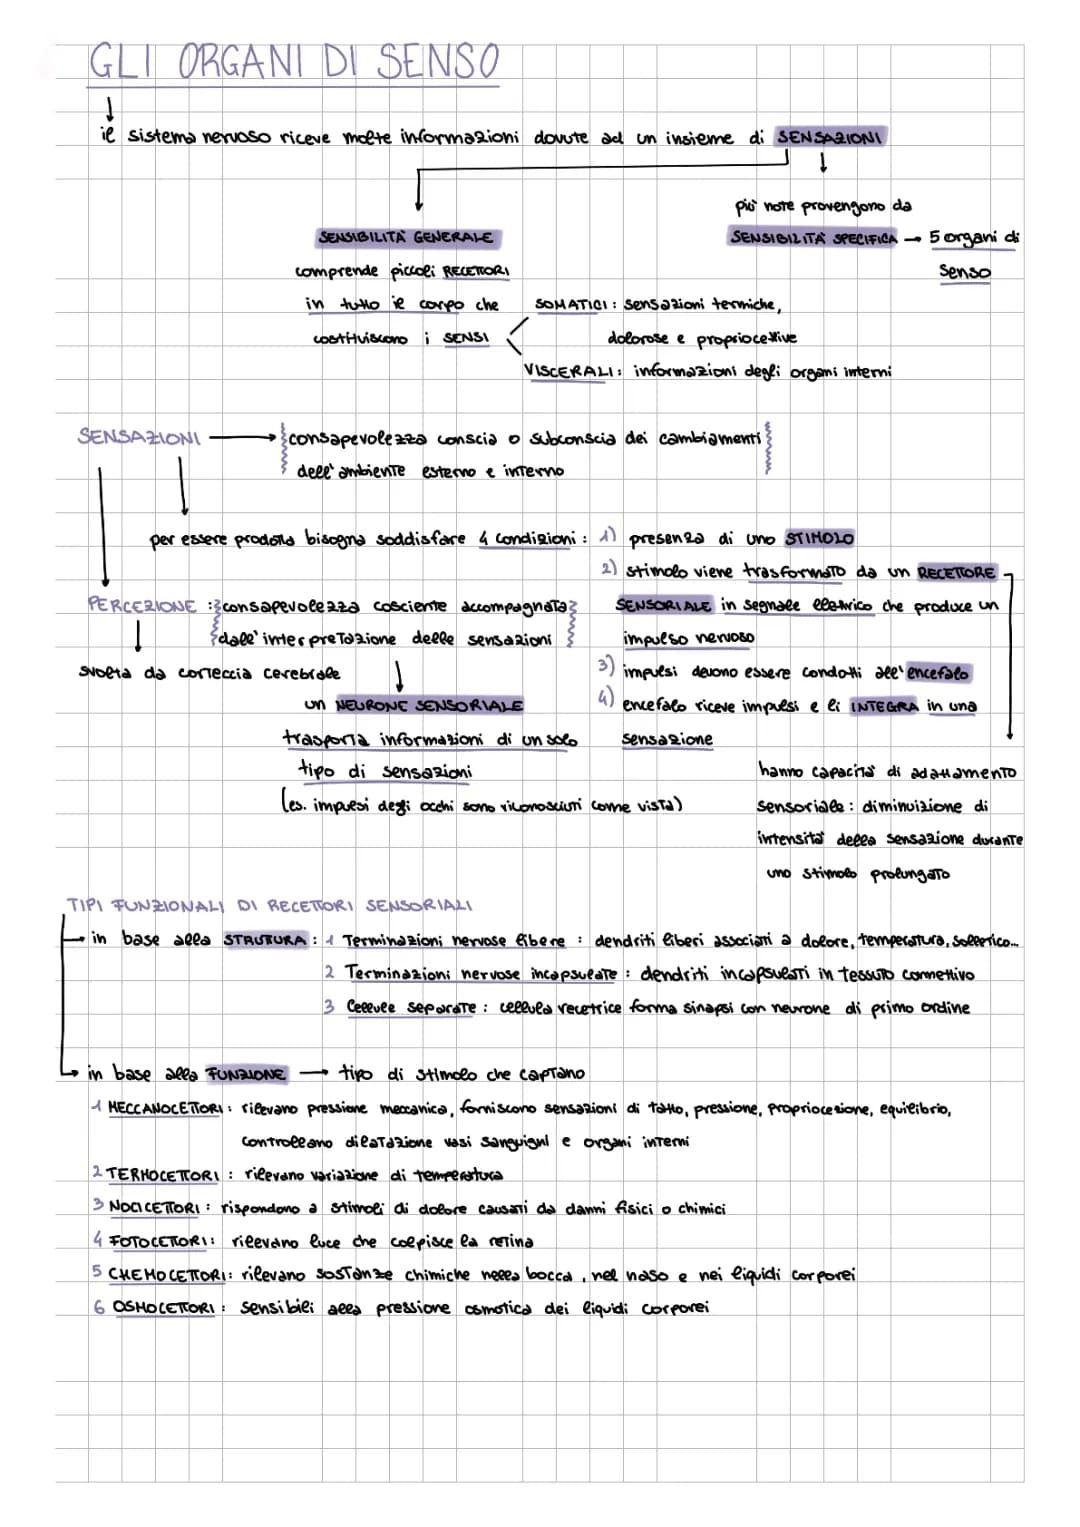 GLI ORGANI DI SENSO
il sistema nervoso riceve molte informazioni dovute ad un insieme di SENSAZIONI
più note provengono da
SENSIBILITÀ SPECIFICA → 5 organi di
senso
SENSIBILITÀ GENERALE
comprende piccoli RECETTORI
in tutto il corpo che
costituiscono i SENSI
SOMATICI: sensazioni termiche,
dolorose e propriocettive
VISCERALI: informazioni degli organi interni
SENSAZIONI → consapevolezza conscia o subconscia dei cambiamenti
dell'ambiente esterno e interno
per essere prodotta bisogna soddisfare 4 condizioni: 1) presenza di uno STIMOLO
2) stimolo viene trasformato da un RECETTORE
SENSORIALE in segnale elettrico che produce un
impulso nervoso
3) impulsi devono essere condotti all'encefalo
4) encefalo riceve impulsi e li INTEGRA in una
sensazione
hanno capacità di adattamento
sensoriale: diminuizione di
intensità della sensazione durante
uno stimolo prolungato
PERCEZIONE: consapevolezza cosciente accompagnata
dall'interpretazione delle sensazioni
svolta da corteccia cerebrale
un NEURONE SENSORIALE
trasporta informazioni di un solo
tipo di sensazioni
(es. impulsi degli occhi sono riconosciuti come vista)
TIPI FUNZIONALI DI RECETTORI SENSORIALI
in base alla STRUTTURA: 1 Terminazioni nervose libere: dendriti liberi associati a dolore, temperatura, solletico...
2 Terminazioni nervose incapsulate: dendriti incapsulati in tessuto connettivo
3 Cellule separate: cellula recetrice forma sinapsi con neurone di primo ordine
in base alla FUNZIONE → tipo di stimolo che captano
1 MECCANOCETTORI: rilevano pressione meccanica, forniscono sensazioni di tatto, pressione, propriocezione, equilibrio,
controllano dilatazione vasi sanguigni e organi interni
2 TERMOCETTORI: rilevano variazione di temperatura
3 NOCICETTORI: rispondono a stimoli di dolore causati da danni fisici o chimici
4 FOTOCETTORI: rilevano luce che colpisce la retina
5 CHEMOCETTORI: rilevano sostanze chimiche nella bocca, nel naso e nei liquidi corporei
6 OSMOCETTORI: sensibili alla pressione osmotica dei liquidi corporei